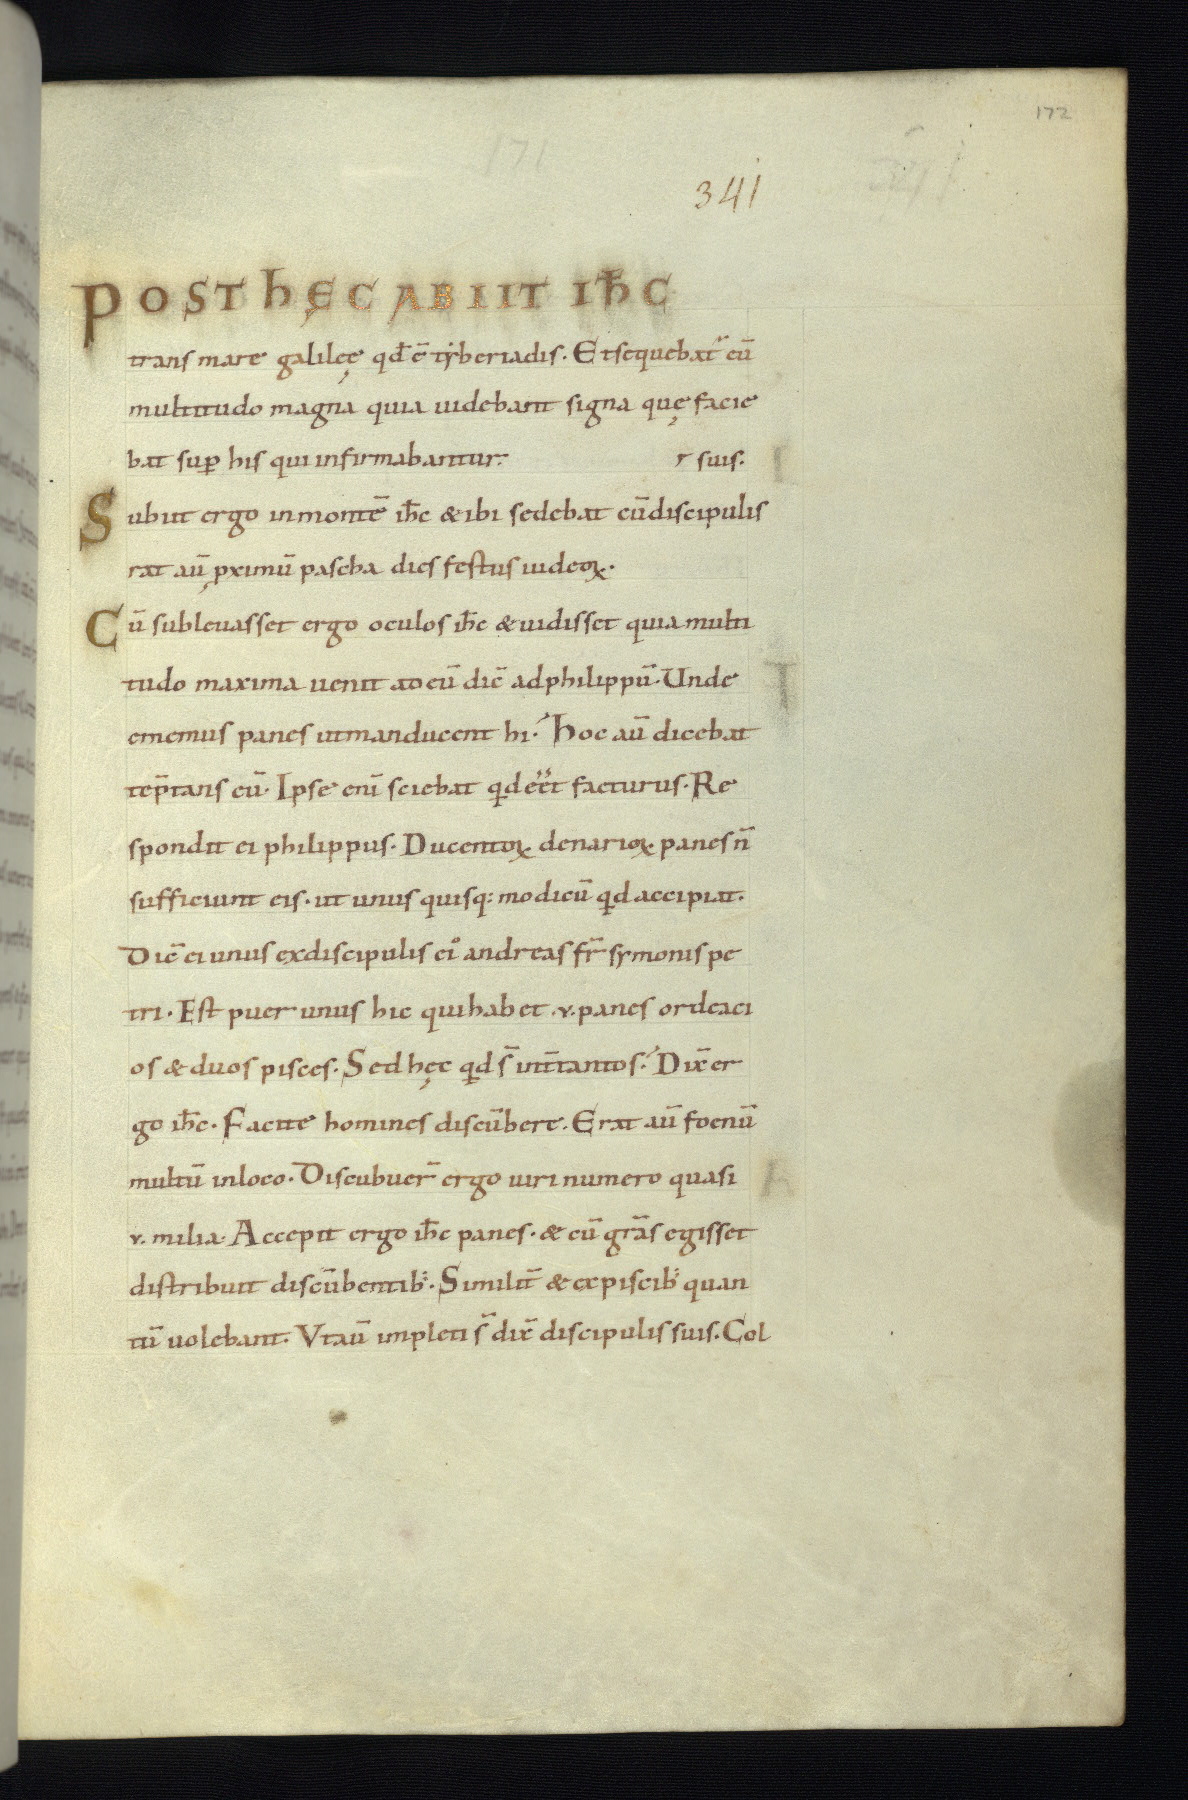 172
341
POST hęC ABIIT IħC
trans mare galileę qđ ē tẏberiadis. Et sequebat᷑ eū
multitudo magna quia uidebant signa quę facie
bat sup̱ his qui infirmabantur.
r suis.
Subiit ergo in montē ihc̄ & ibi sedebat cū discipulis
rat aū ꝓximū pascha dies festus iudeoꝝ.
Cū subleuasset ergo oculos ihc̄ & uidisset quia multi
tudo maxima uenit ad eū dic̄ ad philippū. Unde
ememus panes ut manducent hi. Hoc aū dicebat
tēptans eū. Ipse eni̅ sciebat qd eēt facturus. Re
spondit ei philippus. Ducentoꝝ denarioꝝ panes n̄
sufficiunt eis. ut unus quisq: modicū qd accipiat.
Dic̄ ei unus ex discipulis ei᷒ andreas fr̄ symonis pe
tri. Est puer unus hic qui habet .v. panes ordeaci
os & duos pisces. Sed hęc qd s̄ int̄ tantos. Dix̄ er
go ihc̄. Facite homines discūbere. Erat aū foenū
multū in loco. Discubuer̄ ergo uiri numero quasi
v. milia. Accepit ergo ihc̄ panes. & cū gr̄as egisset
distribuit discūbentib;. Similit̄ & ex piscib; quan
tū uolebant. Vt aū impleti s̄ dix̄ discipulis suis. Col